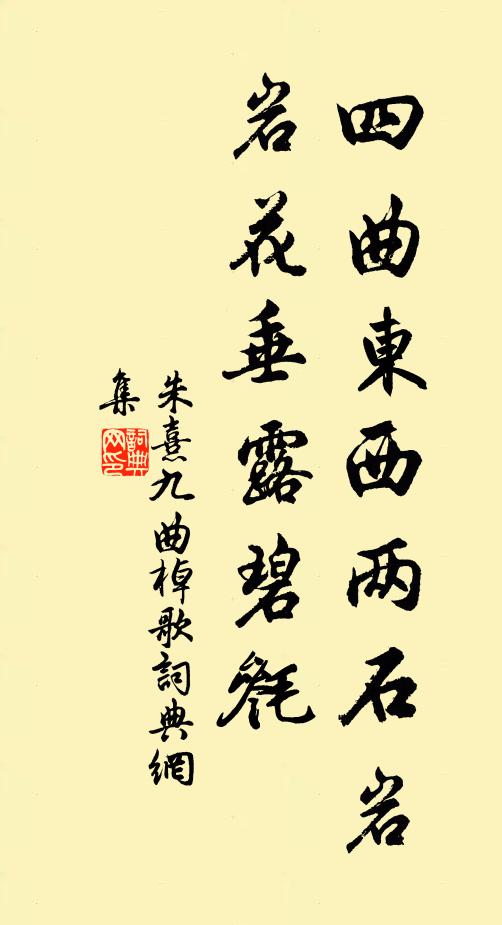 四曲東西两石岩
岩花垂露碧㲯
朱熹九曲棹歌詞典網
集
詞典網印